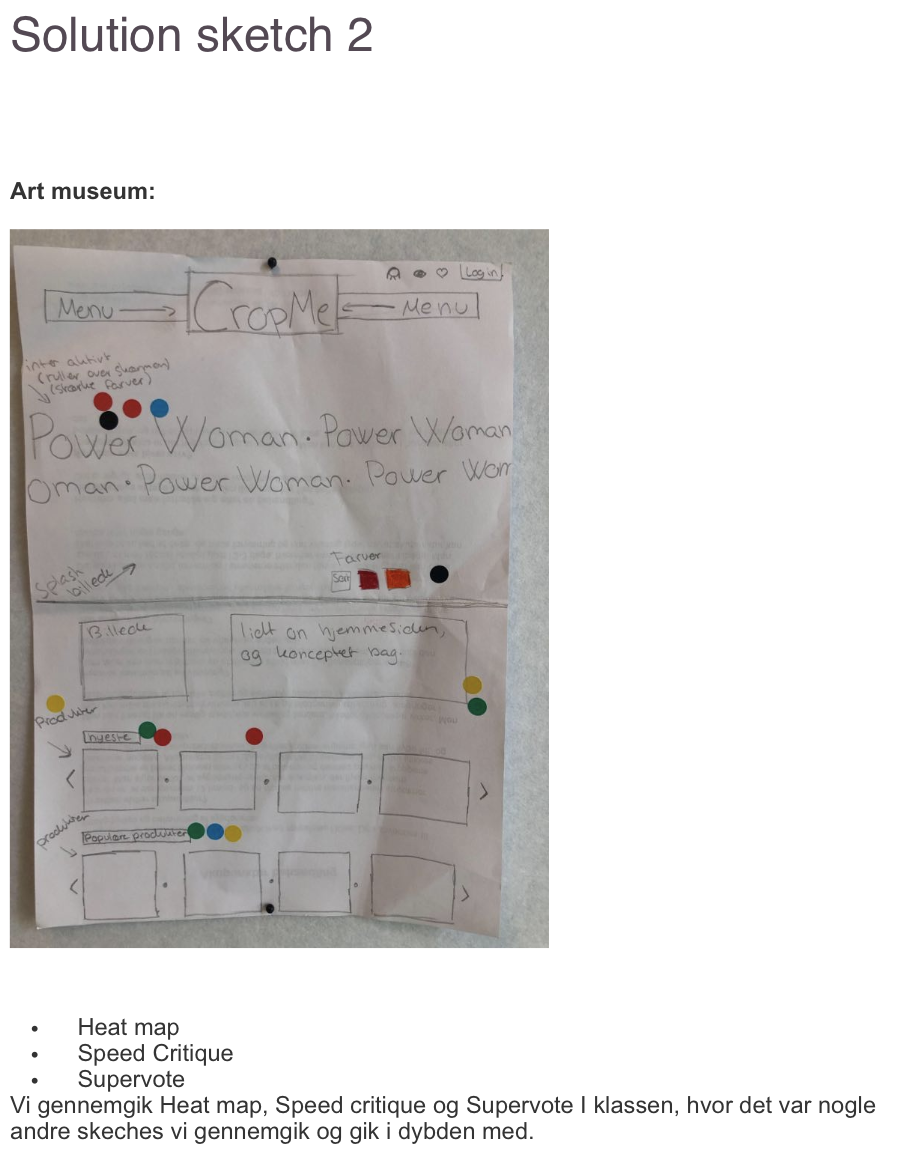 Solution sketch 2
Art museum:
Log in
Menu
CropMe
Menu
inter aktivt
(ruller over skærmen)
(stærke farver)
Power Woman. Power Woman
oman. Power Woman. Power Wom
Farver
Splash
billede
Billede
lidt on hjemmesiden,
og konceptet bag.
Produkter
nyeste
produkter
Populære produkter
• Heat map
• Speed Critique
• Supervote
Vi gennemgik Heat map, Speed critique og Supervote I klassen, hvor det var nogle
andre skeches vi gennemgik og gik i dybden med.